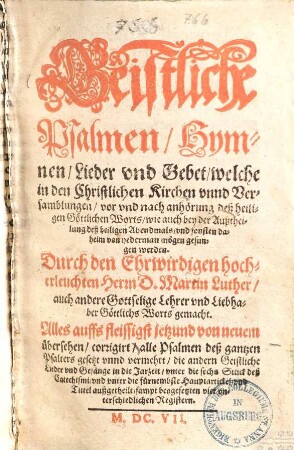 766
Geistliche
Psalmen/ Hym-
nen/ Lieder vnd Gebet/ welche
in den Christlichen Kirchen vnnd Ver-
samblungen/ vor vnd nach anhörung deß heili-
gen Göttlichen Worts/ wie auch bey der Außthei-
lung deß heiligen Abendmals/ vnd sonsten da-
heim von yederman mögen gesun-
gen werden.
Durch den Ehrwirdigen hoch-
erleuchten Herrn D. Martin Luther/
auch andere Gottselige Lehrer vnd Liebha-
ber Göttlichs Worts gemacht.
Alles auffs fleissigst jetzund von neuem
übersehen/ corrigirt/ alle Psalmen deß gantzen
Psalters gesetzt vnnd vermehrt/ die andern Geistliche
Lieder vnd Gesänge in die Jarzeit/ vnter die sechs Stuck deß
Catechismi vnd vnter die fürnembste Hauptarticke vnd
Tittel außgetheilt/ sampt beygesetzten vier vn-
terschiedlichen Registern.
M. DC. VII.
IN
AUGSBURG